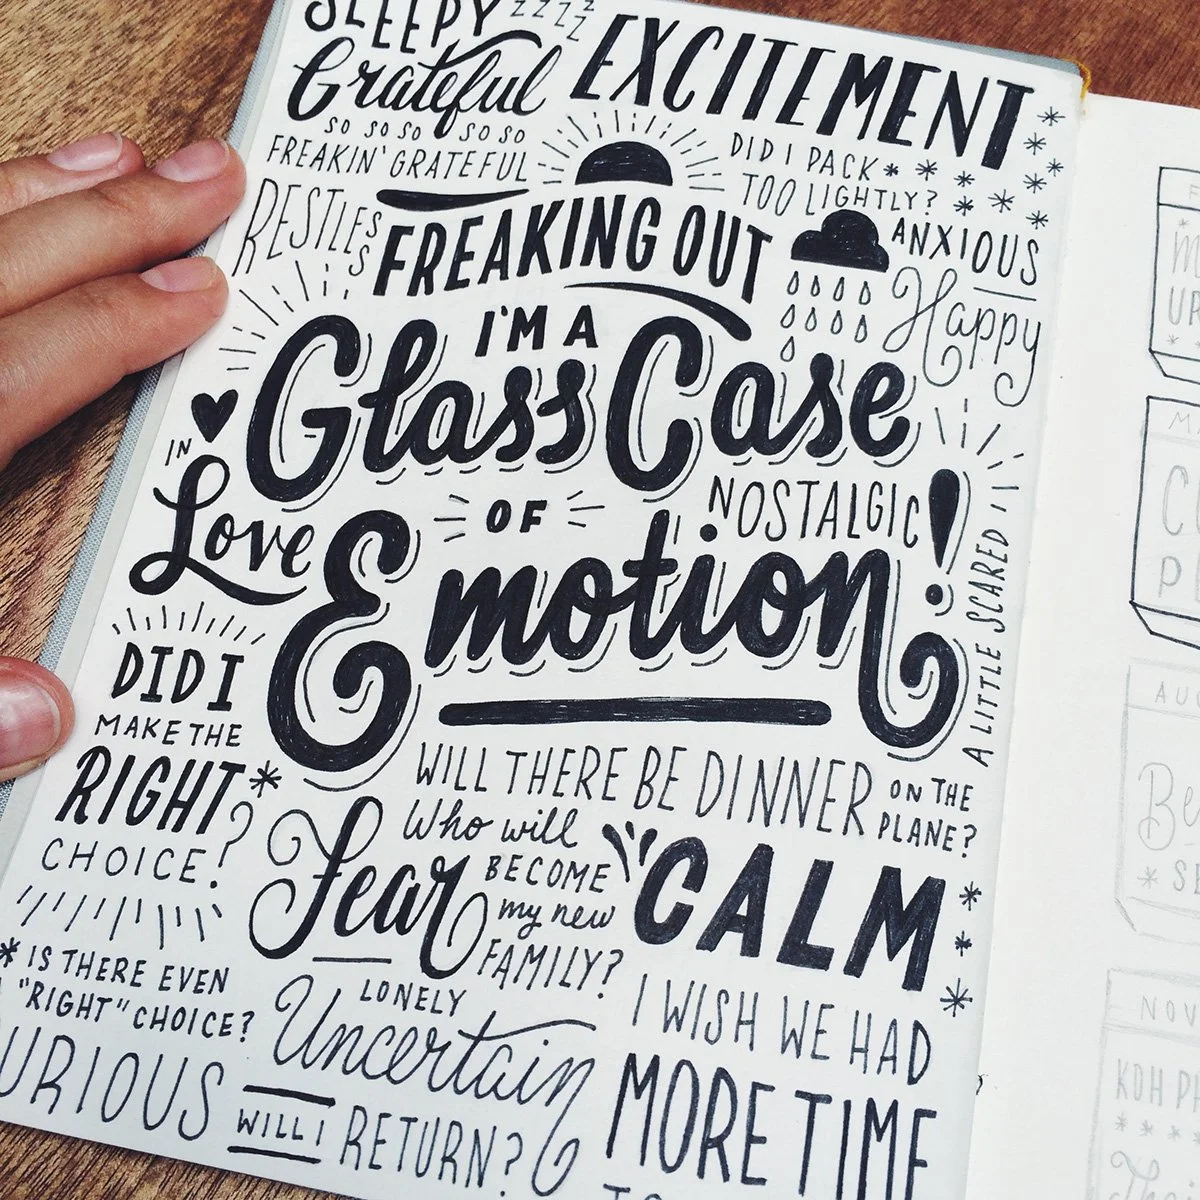 SLEEPY zzzz
Grateful
SO SO SO SO SO
FREAKIN' GRATEFUL
EXCITEMENT
DID I PACK
TOO LIGHTLY?
RESTLESS
FREAKING OUT
ANXIOUS
Happy
I'M A
Glass Case
OF
Emotion!
IN
Love
NOSTALGIC
A LITTLE SCARED
DID I
MAKE THE
RIGHT*
CHOICE?
WILL THERE BE DINNER ON THE
PLANE?
Fear
Who will
BECOME
my new
FAMILY?
CALM
* IS THERE EVEN
"RIGHT" CHOICE?
LONELY
Uncertain
I WISH WE HAD
MORE TIME
URIOUS
WILL I RETURN?
AU
NOV
KOH PH